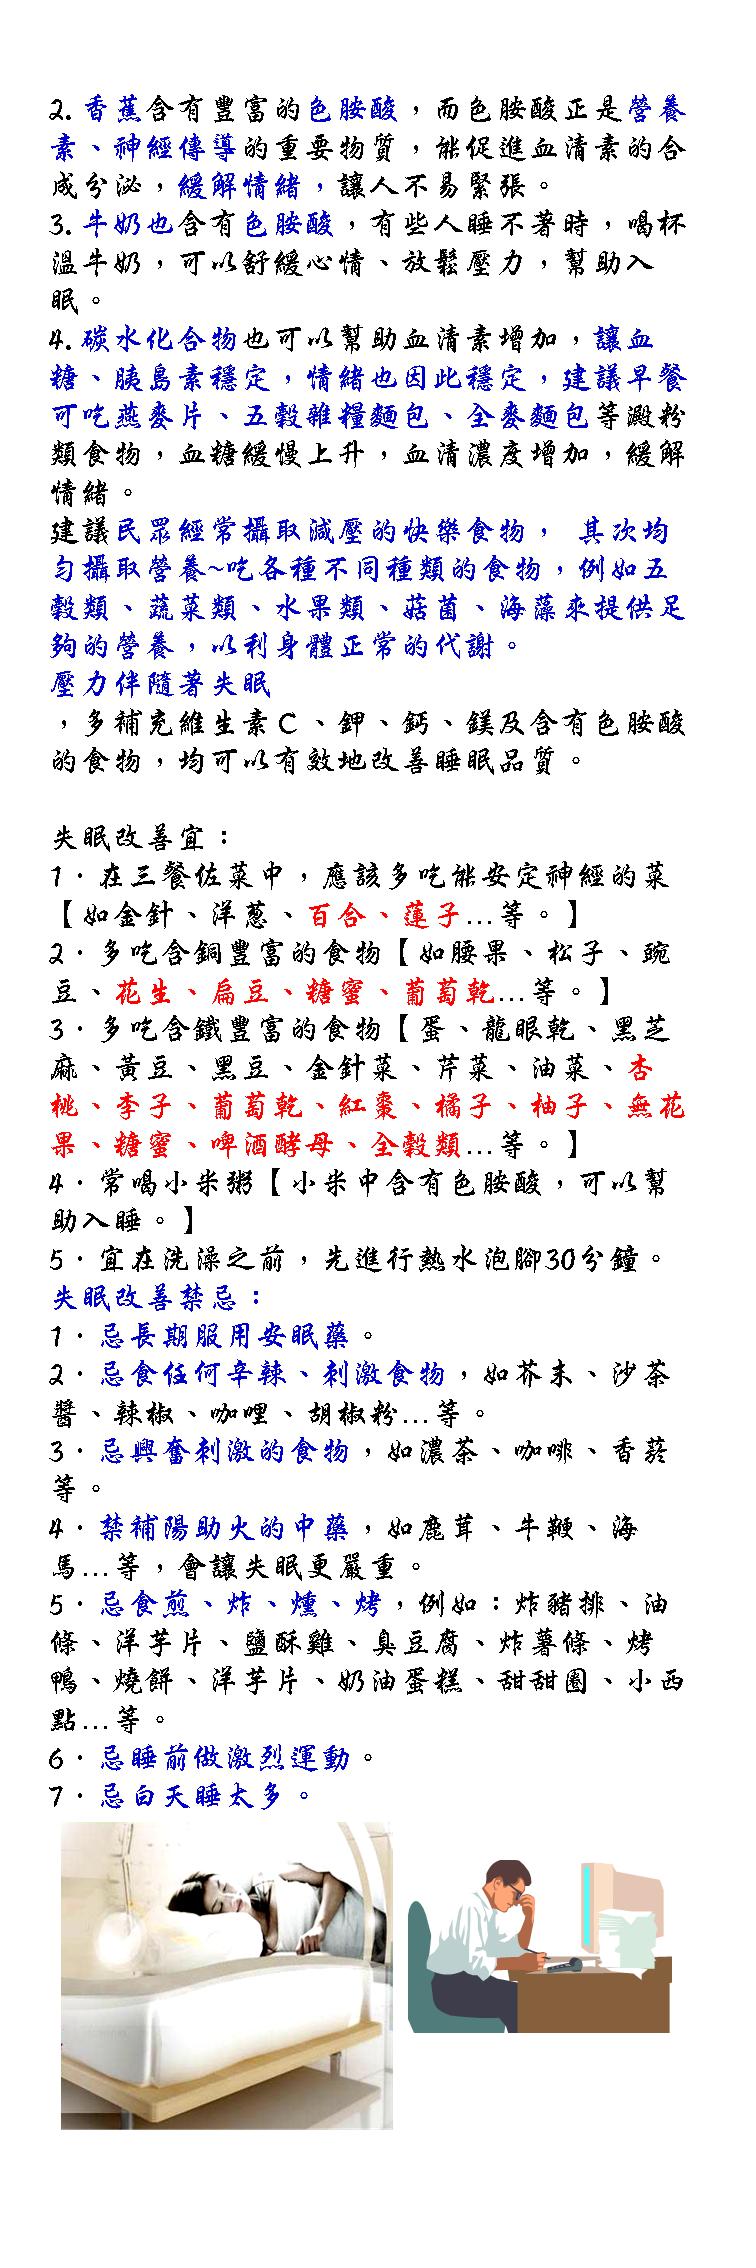 2. 香蕉含有豐富的色胺酸，而色胺酸正是營養
素、神經傳導的重要物質，能促進血清素的合
成分泌，緩解情緒，讓人不易緊張。
3. 牛奶也含有色胺酸，有些人睡不著時，喝杯
溫牛奶，可以舒緩心情、放鬆壓力，幫助入
眠。
4. 碳水化合物也可以幫助血清素增加，讓血
糖、胰島素穩定，情緒也因此穩定，建議早餐
可吃燕麥片、五穀雜糧麵包、全麥麵包等澱粉
類食物，血糖緩慢上升，血清濃度增加，緩解
情緒。
建議民眾經常攝取減壓的快樂食物， 其次均
勻攝取營養~吃各種不同種類的食物，例如五
穀類、蔬菜類、水果類、菇菌、海藻來提供足
夠的營養，以利身體正常的代謝。
壓力伴隨著失眠
，多補充維生素Ｃ、鉀、鈣、鎂及含有色胺酸
的食物，均可以有效地改善睡眠品質。
失眠改善宜：
1．在三餐佐菜中，應該多吃能安定神經的菜
【如金針、洋蔥、百合、蓮子…等。】
2．多吃含銅豐富的食物【如腰果、松子、豌
豆、花生、扁豆、糖蜜、葡萄乾…等。】
3．多吃含鐵豐富的食物【蛋、龍眼乾、黑芝
麻、黃豆、黑豆、金針菜、芹菜、油菜、杏
桃、李子、葡萄乾、紅棗、橘子、柚子、無花
果、糖蜜、啤酒酵母、全穀類…等。】
4．常喝小米粥【小米中含有色胺酸，可以幫
助入睡。】
5．宜在洗澡之前，先進行熱水泡腳30分鐘。
失眠改善禁忌：
1．忌長期服用安眠藥。
2．忌食任何辛辣、刺激食物，如芥末、沙茶
醬、辣椒、咖哩、胡椒粉…等。
3．忌興奮刺激的食物，如濃茶、咖啡、香菸
等。
4．禁補陽助火的中藥，如鹿茸、牛鞭、海
馬…等，會讓失眠更嚴重。
5．忌食煎、炸、燻、烤，例如：炸豬排、油
條、洋芋片、鹽酥雞、臭豆腐、炸薯條、烤
鴨、燒餅、洋芋片、奶油蛋糕、甜甜圈、小西
點…等。
6．忌睡前做激烈運動。
7．忌白天睡太多。